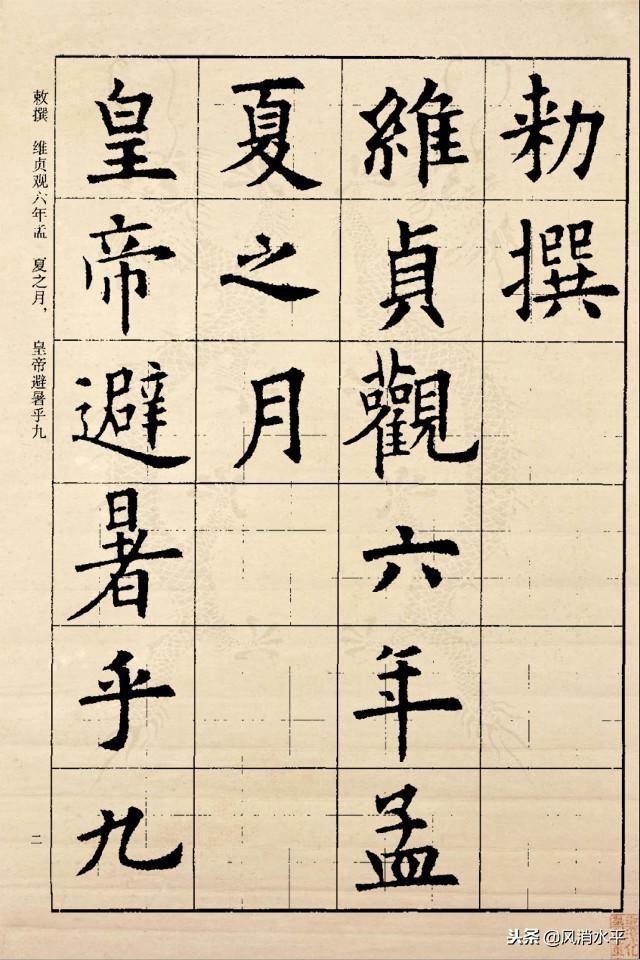 勑撰
維貞觀六年孟
夏之月
皇帝避暑乎九
敕撰 维贞观六年孟 夏之月， 皇帝避暑乎九
二
头条@风消水平